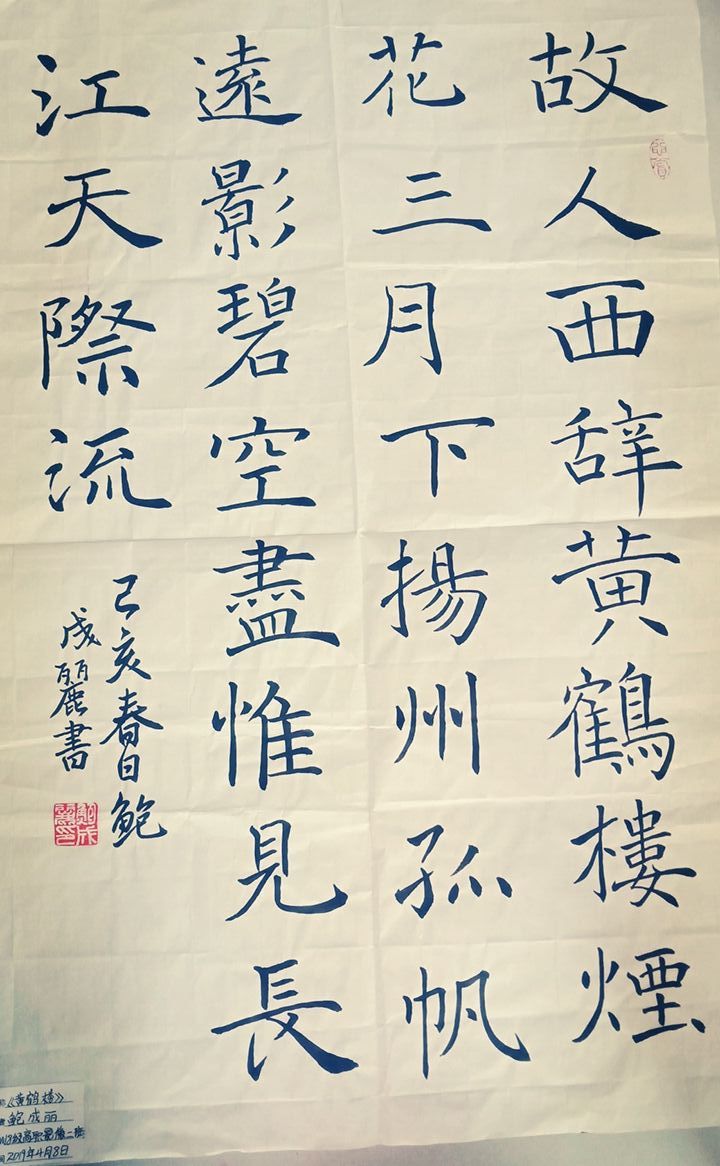 故人西辞黄鶴樓煙
花三月下揚州孤帆
遠影碧空盡惟見長
江天際流
己亥春日鲍
成麗書
《黄鹤楼》
鲍成丽
2019年4月8日